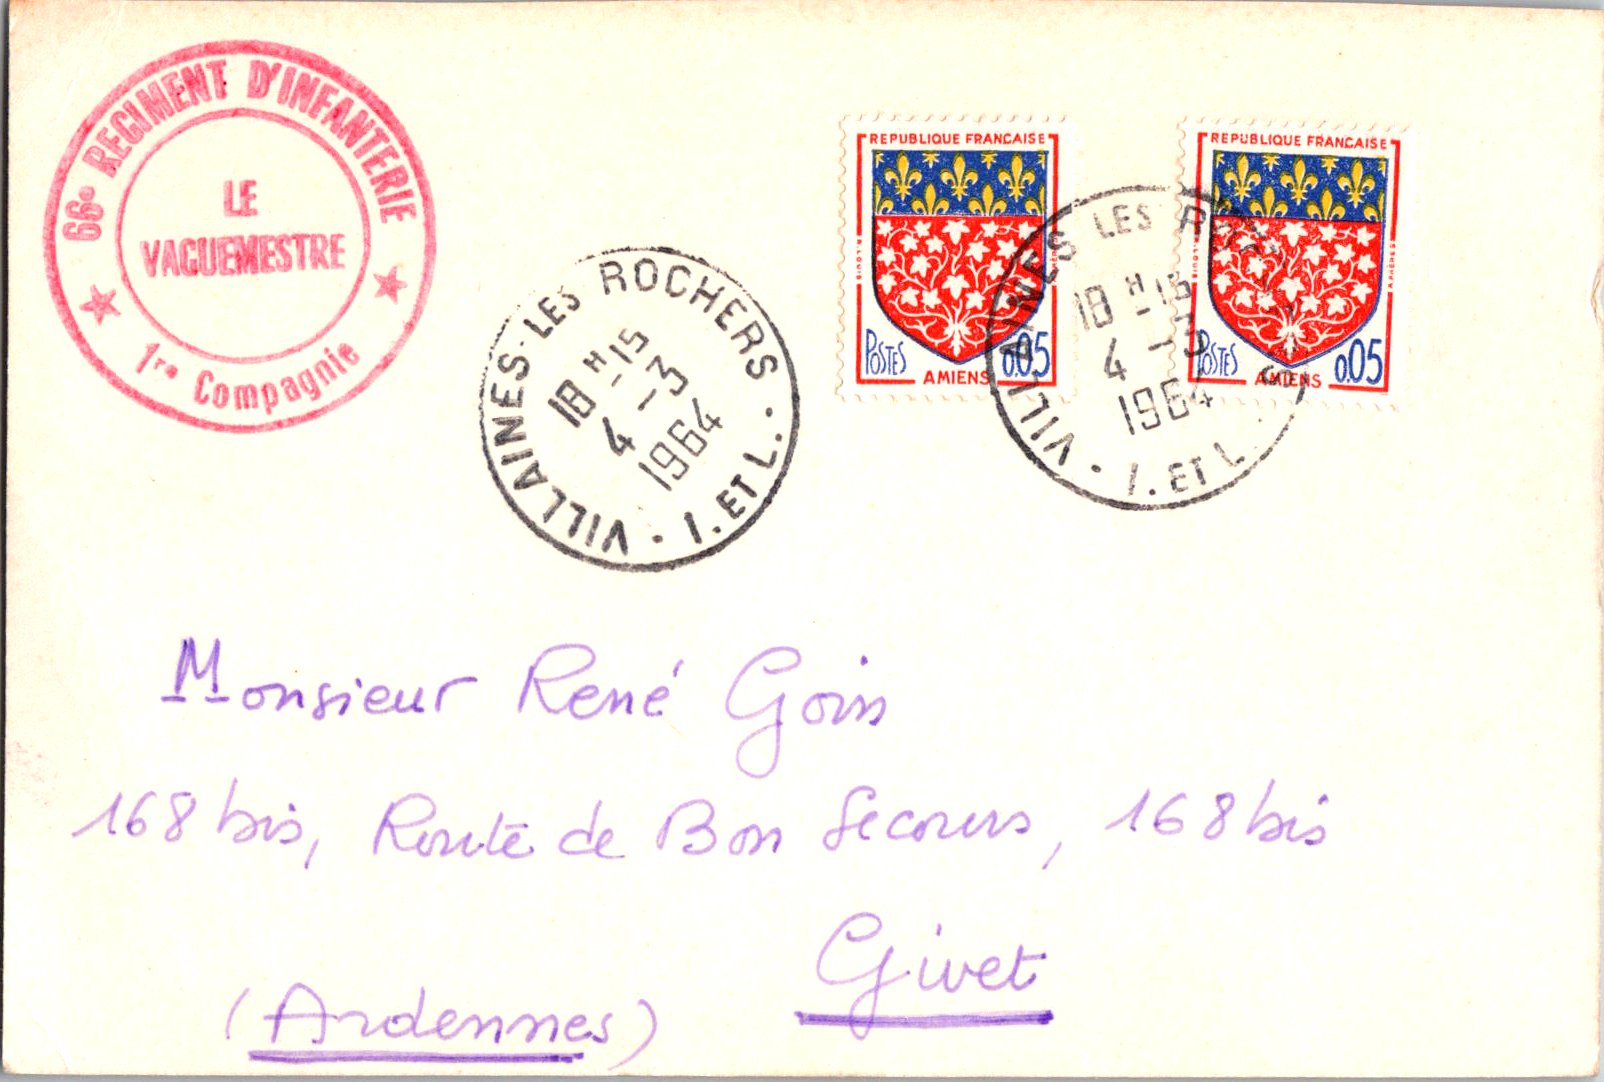 66e REGIMENT D'INFANTERIE
LE
VAGUEMESTRE
1re Compagnie
REPUBLIQUE FRANCAISE
POSTES
0,05
AMIENS
REPUBLIQUE FRANCAISE
POSTES
0,05
AMIENS
VILLAINES-LES ROCHERS
18 H-15
4 -3
1964
I. ET L.
VILLAINES LES
18 H-15
4 -3
1964
I. ET L.
Monsieur René Goin
168 bis, Route de Bon Secours, 168 bis
Givet
(Ardennes)